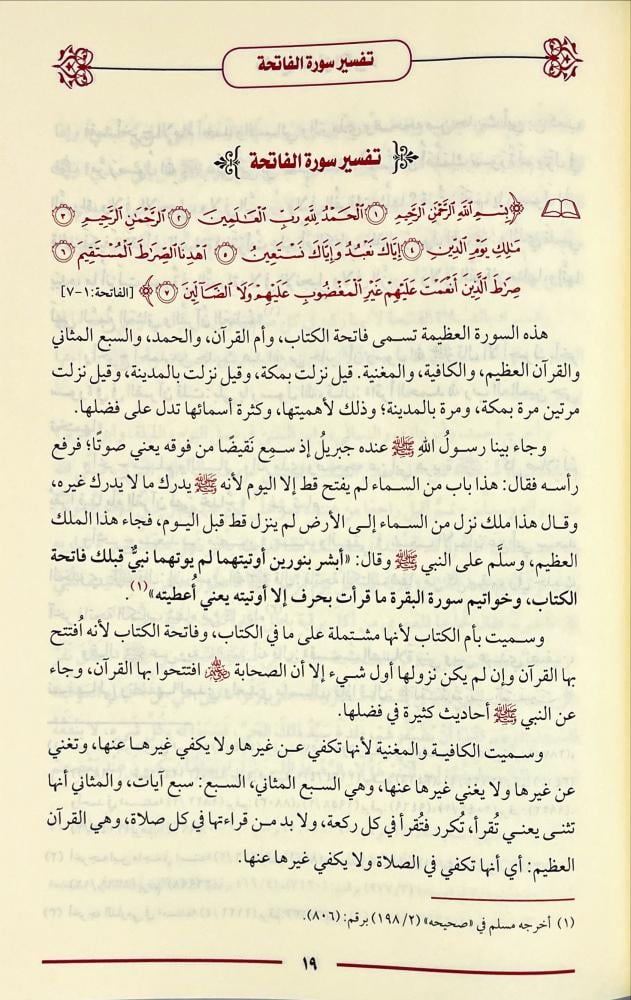 تفسير سورة الفاتحة
تفسير سورة الفاتحة
﴿بِسْمِ اللَّهِ الرَّحْمَٰنِ الرَّحِيمِ ۝١ الْحَمْدُ لِلَّهِ رَبِّ الْعَالَمِينَ ۝٢ الرَّحْمَٰنِ الرَّحِيمِ ۝٣
مَالِكِ يَوْمِ الدِّينِ ۝٤ إِيَّاكَ نَعْبُدُ وَإِيَّاكَ نَسْتَعِينُ ۝٥ اهْدِنَا الصِّرَاطَ الْمُسْتَقِيمَ ۝٦
صِرَاطَ الَّذِينَ أَنْعَمْتَ عَلَيْهِمْ غَيْرِ الْمَغْضُوبِ عَلَيْهِمْ وَلَا الضَّالِّينَ ۝٧﴾ [الفاتحة:١-٧]
هذه السورة العظيمة تسمى فاتحة الكتاب، وأم القرآن، والحمد، والسبع المثاني
والقرآن العظيم، والكافية، والمغنية. قيل نزلت بمكة، وقيل نزلت بالمدينة، وقيل نزلت
مرتين مرة بمكة، ومرة بالمدينة؛ وذلك لأهميتها، وكثرة أسمائها تدل على فضلها.
وجاء بينا رسولُ اللهِ ﷺ عنده جبريلُ إذ سمِع نَقيضًا من فوقه يعني صوتًا؛ فرفع
رأسه فقال: هذا باب من السماء لم يفتح قط إلا اليوم لأنه ﷺ يدرك ما لا يدرك غيره،
وقال هذا ملك نزل من السماء إلى الأرض لم ينزل قط قبل اليوم، فجاء هذا الملك
العظيم، وسلَّم على النبي ﷺ وقال: «أبشر بنورين أوتيتهما لم يوتهما نبيٌّ قبلك فاتحة
الكتاب، وخواتيم سورة البقرة ما قرأت بحرف إلا أوتيته يعني أُعطيته»(١).
وسميت بأم الكتاب لأنها مشتملة على ما في الكتاب، وفاتحة الكتاب لأنه أُفتتح
بها القرآن وإن لم يكن نزولها أول شيء إلا أن الصحابة ﷺ افتتحوا بها القرآن، وجاء
عن النبي ﷺ أحاديث كثيرة في فضلها.
وسميت الكافية والمغنية لأنها تكفي عن غيرها ولا يكفي غيرها عنها، وتغني
عن غيرها ولا يغني غيرها عنها، وهي السبع المثاني، السبع: سبع آيات، والمثاني أنها
تثنى يعني تُقرأ، تُكرر فتُقرأ في كل ركعة، ولا بد من قراءتها في كل صلاة، وهي القرآن
العظيم: أي أنها تكفي في الصلاة ولا يكفي غيرها عنها.
(١) أخرجه مسلم في «صحيحه» (١٩٨/٢) برقم: (٨٠٦).
١٩